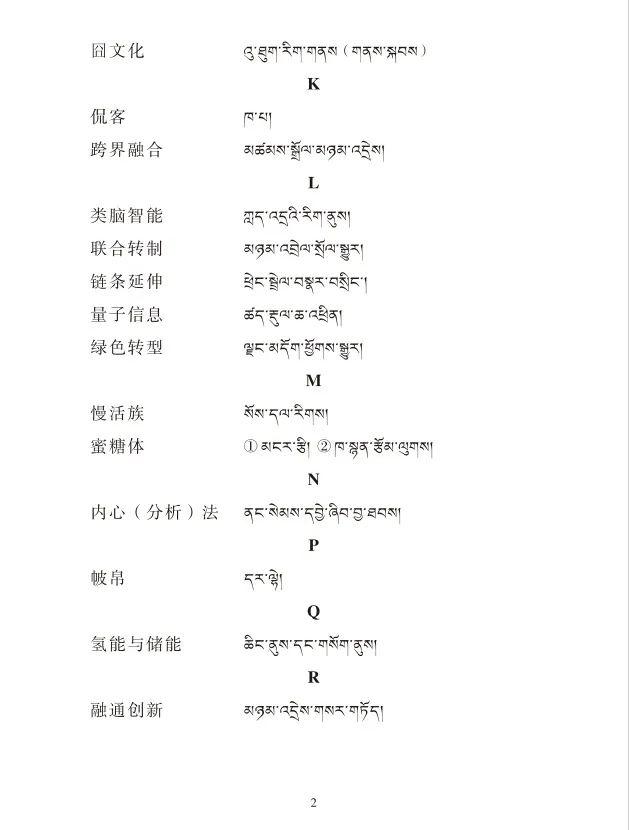 囧文化 འུ་ཐུག་རིག་གནས（གནས་སྐབས）
K
侃客 ཁ་པ།
跨界融合 མཚམས་སྒྲོལ་མཉམ་འདྲེས།
L
类脑智能 ཀླད་འདྲའི་རིག་ནུས།
联合转制 མཉམ་འབྲེལ་སྲོལ་སྒྱུར།
链条延伸 ཕྲེང་སྦྲེལ་བསྣར་བསྲིང་།
量子信息 ཚད་རྡུལ་ཆ་འཕྲིན།
绿色转型 ལྗང་མདོག་ཕྱོགས་སྒྱུར།
M
慢活族 སོས་དལ་རིགས།
蜜糖体 ① མངར་རྩི། ② ཁ་སྙན་རྩོམ་ལུགས།
N
内心（分析）法 ནང་སེམས་དབྱེ་ཞིབ་བྱ་ཐབས།
P
帔帛 དར་ལྷེ།
Q
氢能与储能 ཆིང་ནུས་དང་གསོག་ནུས།
R
融通创新 མཉམ་འདྲེས་གསར་གཏོད།
2